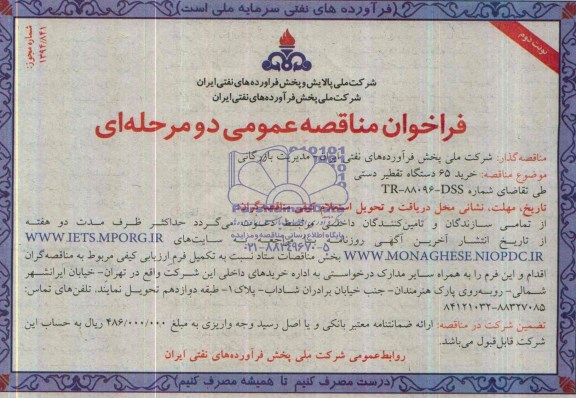 (فرآورده های نفتی سرمایه ملی است)
نوبت دوم
شماره مجوز: ۱۳۹۴/۸۴۱
شرکت ملی پالایش و پخش فرآورده‌های نفتی ایران
شرکت ملی پخش فرآورده‌های نفتی ایران
فراخوان مناقصه عمومی دو مرحله‌ای
مناقصه‌گذار: شرکت ملی پخش فرآورده‌های نفتی ایران- مدیریت بازرگانی
موضوع مناقصه: خرید ۶۵ دستگاه تقطیر دستی
طی تقاضای شماره TR-۸۸۰۹۶-DSS
تاریخ، مهلت، نشانی محل دریافت و تحویل استعلام کیفی مناقصه‌گران
از تمامی سازندگان و تامین‌کنندگان داخلی واجد شرایط دعوت می‌گردد حداکثر ظرف مدت دو هفته
از تاریخ انتشار آخرین آگهی روزنامه با مراجعه به سایت‌های WWW.IETS.MPORG.IR
WWW.MONAGHESE.NIOPDC.IR بخش مناقصات ستاد نسبت به تکمیل فرم ارزیابی کیفی مربوط به مناقصه‌گران
اقدام و این فرم را به همراه سایر مدارک درخواستی به اداره خریدهای داخلی این شرکت واقع در تهران- خیابان ایرانشهر
شمالی- روبه‌روی پارک هنرمندان- جنب خیابان برادران شاداب- پلاک۱- طبقه دوازدهم تحویل نمایند. تلفن‌های تماس:
۸۴۱۲۱۰۳۲-۸۸۳۲۷۰۸۵
تضمین شرکت در مناقصه: ارائه ضمانتنامه معتبر بانکی و یا اصل رسید وجه واریزی به مبلغ ۴۸۶/۰۰۰/۰۰۰ ریال به حساب این
شرکت قابل قبول می‌باشد.
روابط عمومی شرکت ملی پخش فرآورده‌های نفتی ایران
(درست مصرف کنیم تا همیشه مصرف کنیم)
پایگاه اطلاع رسانی مناقصه و مزایده
۰۲۱-۸۸۳۴۹۶۷۰-۵